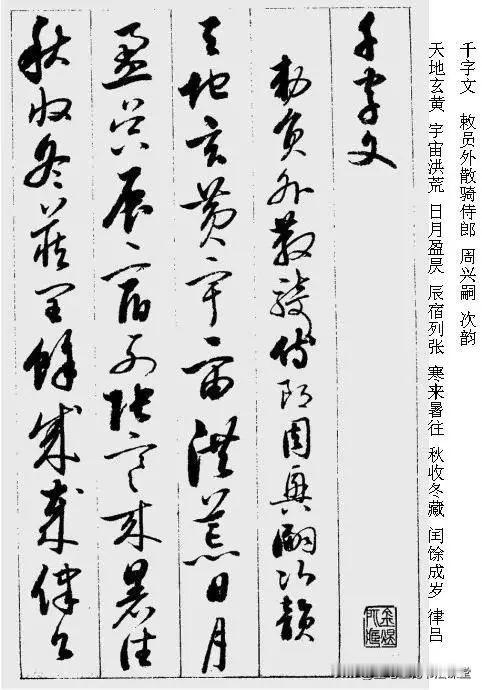 千字文 敕员外散骑侍郎 周兴嗣 次韵
天地玄黄 宇宙洪荒 日月盈昃 辰宿列张 寒来暑往 秋收冬藏 闰馀成岁 律吕
千字文
勅員外散騎侍郎周興嗣次韻
天地玄黄宇宙洪荒日月
盈昃辰宿列張寒来暑往
秋收冬藏閏餘成歲律吕